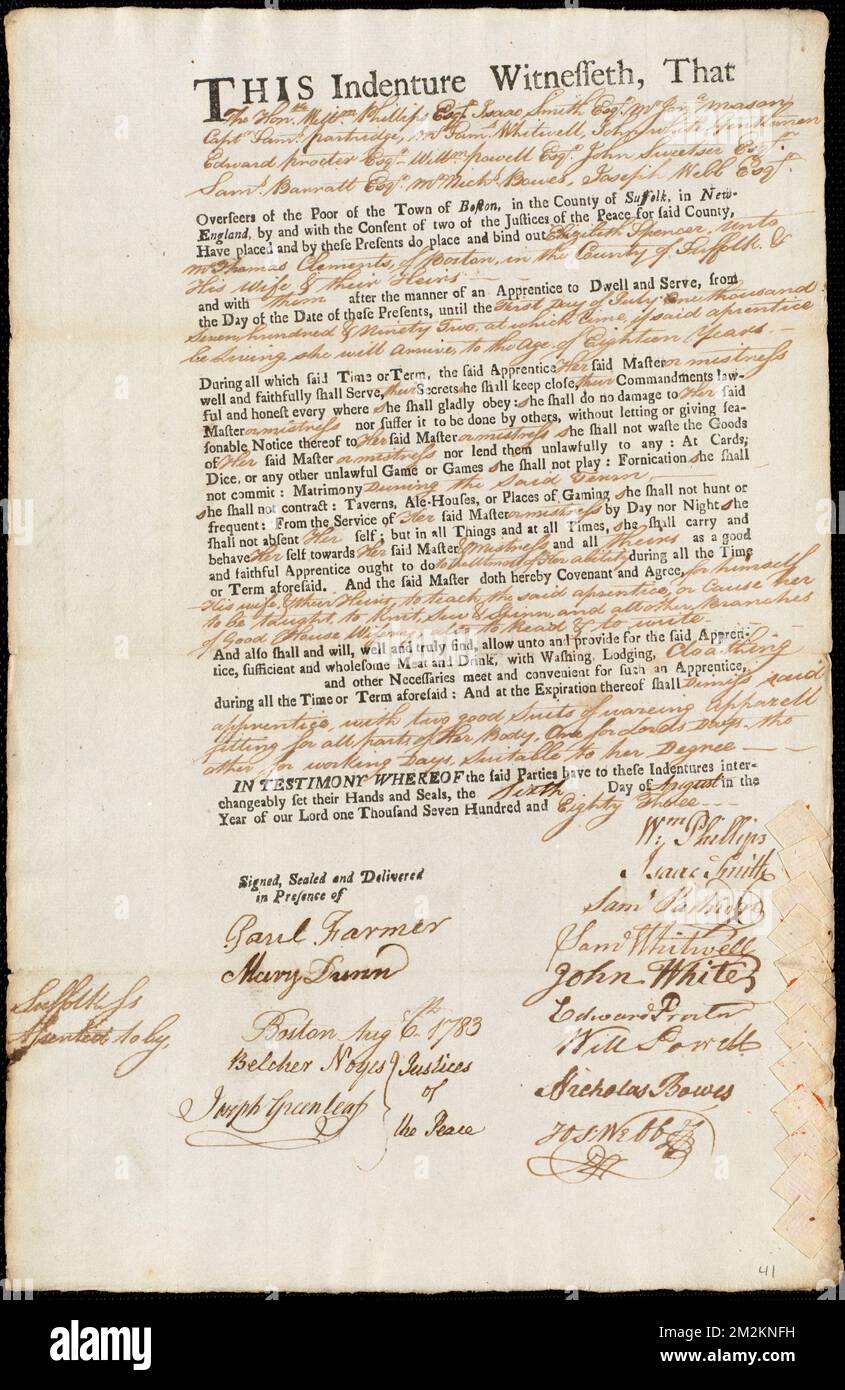 THIS Indenture Witnesseth, That
The Honble Willm Phillips Esqr. Isaac Smith Esqr. Mr Jona Mason
Capt. Saml. Partridge, Mr Saml. Whitwell, John White Gentlemen
Edward Procter Esqr Willm Powell Esqr. John Sweetser Esqr. or
Saml. Barratt Esqr. Mr Nichs. Bowes, Joseph Webb Esqr.
Overseers of the Poor of the Town of Boston, in the County of Suffolk, in New-
England, by and with the Consent of two of the Justices of the Peace for said County,
Have placed and by these Presents do place and bind out Elizabeth Spencer, unto
Mr Thomas Clements, of Boston, in the County of Suffolk. &
His Wife & their Heirs
and with them after the manner of an Apprentice to Dwell and Serve, from
the Day of the Date of these Presents, until the First Day of July One thousand
Seven hundred & Ninety Two, at which time, if said aprentice
be Living, she will arrive, to the Age of Eighteen Years. —
During all which said Time or Term, the said Apprentice Her said Master or mistress
well and faithfully shall Serve, their Secrets she shall keep close, their Commandments law-
ful and honest every where she shall gladly obey: she shall do no damage to Her said
Master or mistress nor suffer it to be done by others, without letting or giving sea-
sonable Notice thereof to Her said Master or mistress she shall not waste the Goods
of Her said Master or mistress nor lend them unlawfully to any: At Cards,
Dice, or any other unlawful Game or Games she shall not play: Fornication she shall
not commit: Matrimony During the Said Term
she shall not contract: Taverns, Ale-Houses, or Places of Gaming she shall not hunt or
frequent: From the Service of Her said Master or mistress by Day nor Night she
shall not absent Her self; but in all Things and at all Times, she shall carry and
behave Her self towards Her said Master & Mistress and all Theirs as a good
and faithful Apprentice ought to do to ye utmost of Her ability during all the Time
or Term aforesaid. And the said Master doth hereby Covenant and Agree, for himself
His wife, & their Heirs, to teach, the said aprentice, or Cause her
to be taught, to Knit, Sew & Spinn, and all other Branches
of Good House Wifery, also to Read & to write. -
And also shall and will, well and truly find, allow unto and provide for the said Appren-
tice, sufficient and wholesome Meat and Drink, with Washing, Lodging, Cloathing
and other Necessaries meet and convenient for such an Apprentice,
during all the Time or Term aforesaid: And at the Expiration thereof shall Dimiss said
apprentice, with two good Suits of wareing Apparell
fitting for all parts of Her Body, One for Lords Days, the
other for working Days, Suitable to her Degree
IN TESTIMONY WHEREOF the said Parties have to these Indentures inter-
changeably set their Hands and Seals, the Sixth Day of August in the
Year of our Lord one Thousand Seven Hundred and Eighty Three
Wm Phillips
Isaac Smith
Signed, Sealed and Delivered
in Presence of
Saml Partridge
Paul Farmer
Saml Whitwell
Mary Dunn
John White
Suffolk ss
Assented to by,
Edward Procter
Boston Aug 6th 1783
Will Powell
Belcher Noyes } Justices
of
Nicholas Bowes
Joseph Greenleaf
the Peace
Jos Webb
41
alamy
alamy
Image ID: 2M2KNFH
www.alamy.com